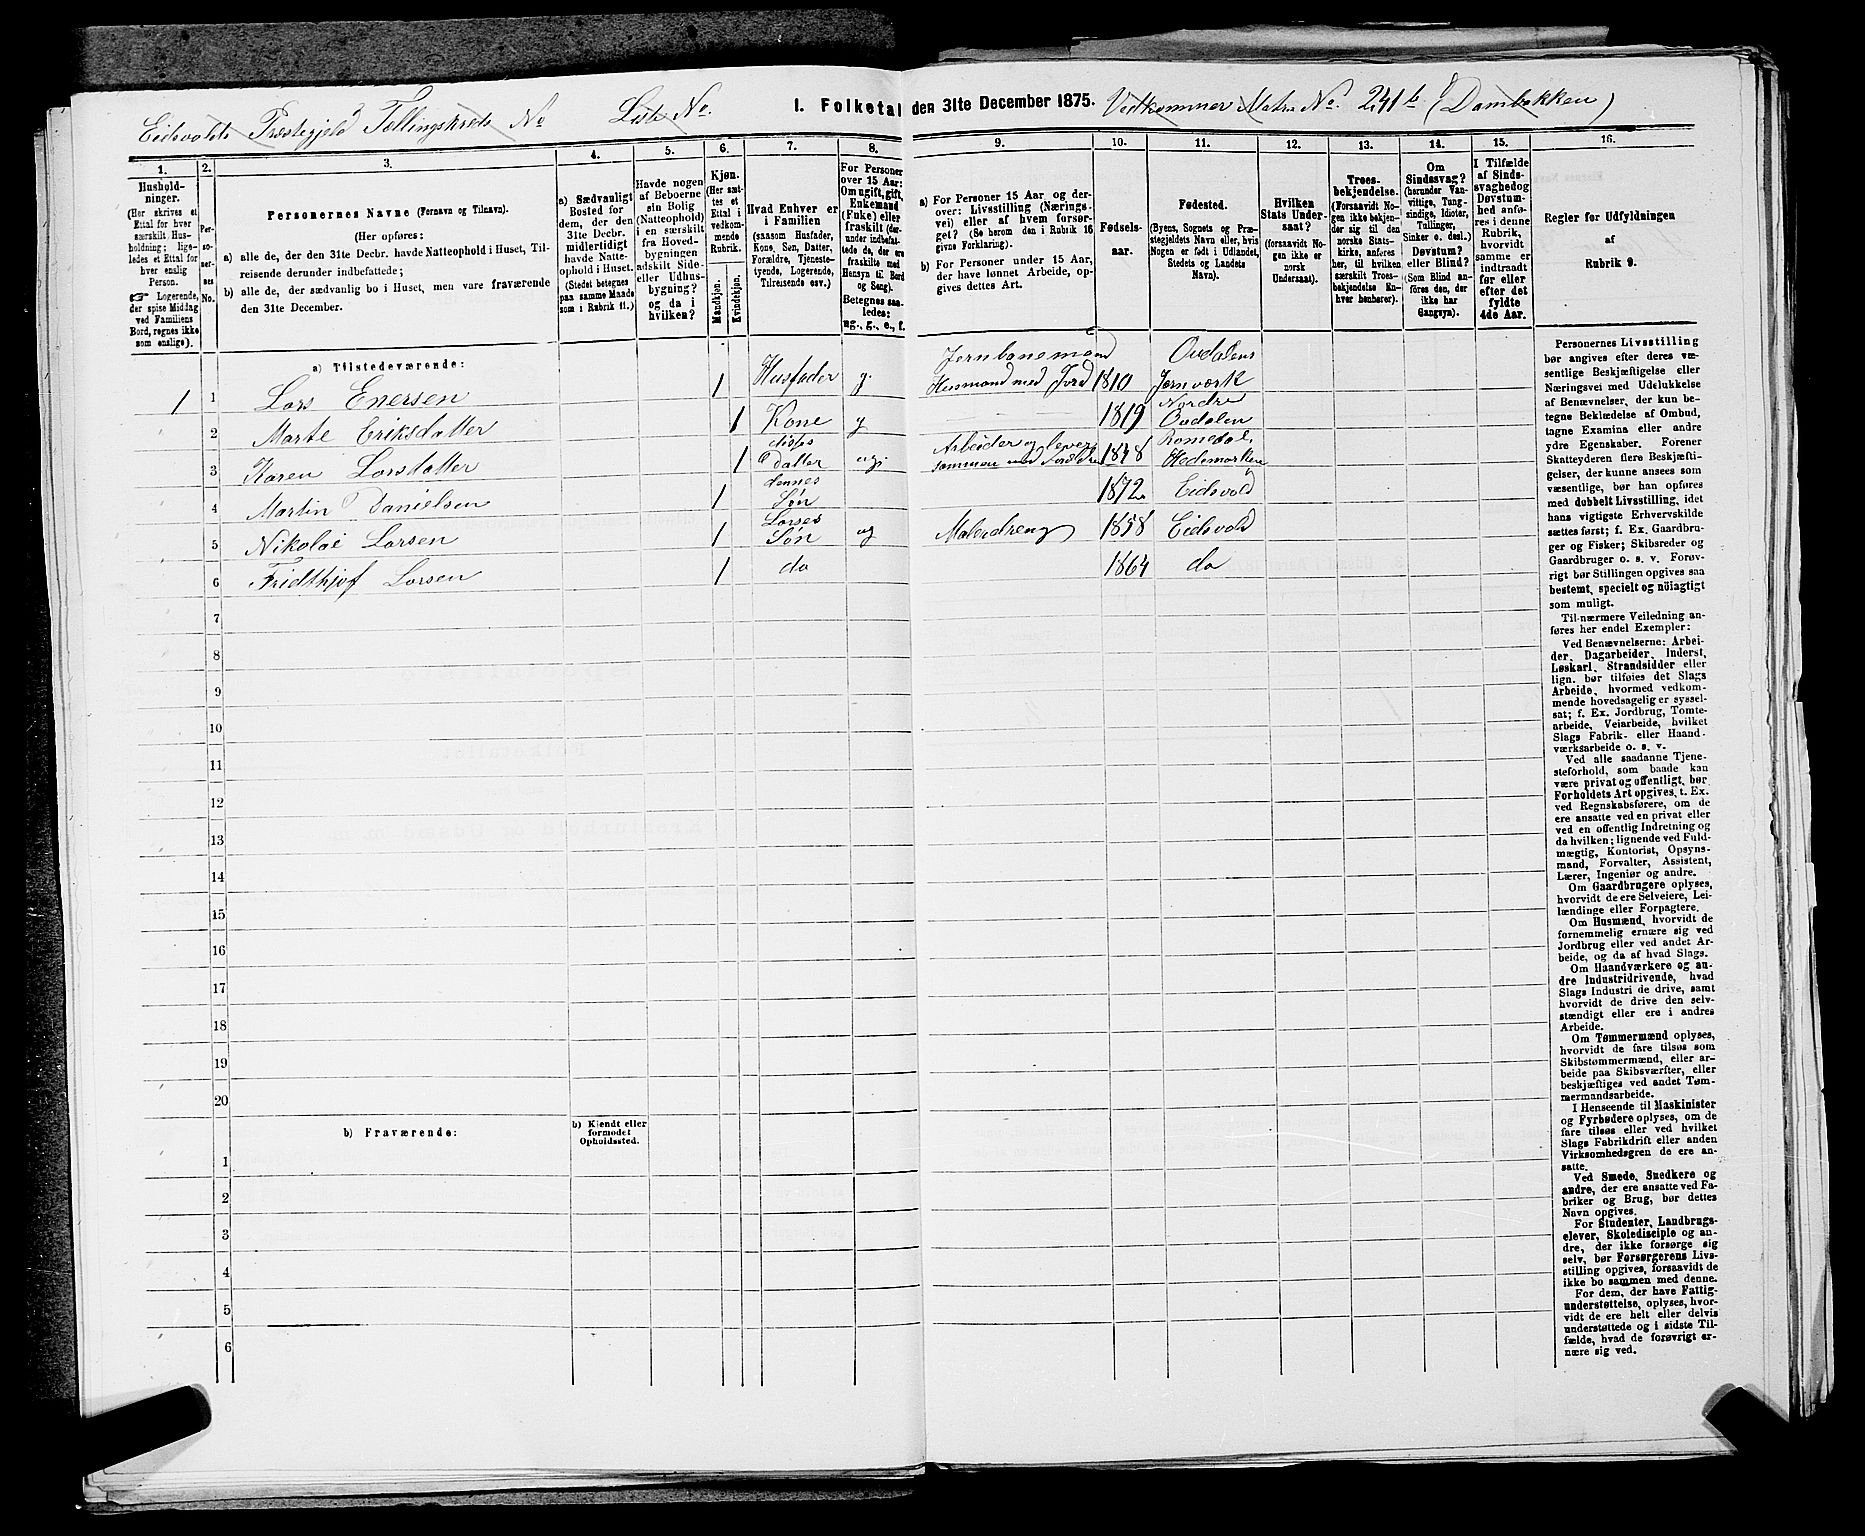 Eidsvolds Præstegjeld Tællingskreds No Liste No. I. Folketal den 31te December 1875. Vedkommer Matr. No. 241 b (Dambakken)
1. 2. 3. 4. 5. 6. 7. 8. 9. 10. 11. 12. 13. 14. 15. 16.
Hushold-
ninger.
(Her skrives et
Ettal for hver
særskilt Hus-
holdning; lige-
ledes et Ettal for
hver enslig
Person.
☞ Logerende,
der spise Middag
ved Familiens
Bord, regnes ikke
som enslige).
Per-
so-
ner-
nes
No.
Personernes Navne (Fornavn og Tilnavn).
(Her opføres:
a) alle de, der den 31te Decbr. havde Natteophold i Huset, Til-
reisende derunder indbefattede;
b) alle de, der sædvanlig bo i Huset, men vare fraværende
den 31te December.
a) Sædvanligt
Bosted for
dem, der den
31te Decbr.
midlertidigt
havde Natte-
ophold i Huset.
(Stedet betegnes
paa samme Maade
som i Rubrik 11.)
Havde nogen
af Beboerne
sin Bolig
(Natteophold)
i en særskilt
fra Hoved-
bygningen
adskilt Side-
eller Udhus-
bygning?
og da i
hvilken?
Kjøn.
(Her sæt-
tes et
Ettal i
vedkom-
mende
Rubrik.
Mandkjøn.
Kvindekjøn.
Hvad Enhver er
i Familien
(saasom Husfader,
Kone, Søn, Datter,
Forældre, Tjeneste-
tyende, Logerende,
Tilreisende osv.)
For Personer
over 15 Aar:
Om ugift, gift,
Enkemand
(Enke) eller
fraskilt (der-
under indbefat-
tede de, der ere
fraskilte med
Hensyn til Bord
og Seng).
Betegnes saa-
ledes:
ug., g., e., f.
a) For Personer 15 Aar og der-
over: Livsstilling (Nærings-
vei) eller af hvem forsør-
get? (Se herom den i Rubrik 16
givne Forklaring).
b) For Personer under 15 Aar,
der have lønnet Arbeide, op-
gives dettes Art.
Fødsels-
aar.
Fødested.
(Byens, Sognets og Præ-
stegjeldets Navn, eller, hvis
Nogen er født i Udlandet,
Stedets og Landets
Navn).
Hvilken
Stats Under-
saat?
(forsaavidt No-
gen ikke er
norsk
Undersaat).
Troes-
bekjendelse.
(Forsaavidt Nogen
ikke bekjen-
der sig til den
norske Stats-
kirke, anføres
her, til hvilken
særskilt Troes-
bekjendelse En-
hver henhører).
Om
Sindssvag?
(herunder Van-
vittige, Tung-
sindige, Idioter,
Tullinger,
Sinker o. desl.)
Døvstum?
eller Blind?
(Som Blind an-
føres den, der
ikke har
Gangsyn).
I Tilfælde
af Sinds-
svaghed og
Døvstum-
hed anfø-
res i denne
Rubrik,
hvorvidt
samme er
indtraadt
før eller
efter det
fyldte
4de Aar.
Regler for Udfyldningen
af
Rubrik 9.
a) Tilstedeværende:
1 1 Lars Enersen 1 Husfader g. Jernbanemand Husmand med Jord 1810 Oudalens Jernværk
2 Marte Eriksdatter 1 Kone g 1819 Nordre Oudalen
3 Karen Larsdatter 1 disses Datter ug. Arbeider og lever sammen med Forældre 1848 Romedal, Hedemarken
4 Martin Danielsen 1 dennes Søn 1872 Eidsvold
5 Nikolai Larsen 1 Larses Søn ug Maledreng 1858 Eidsvold
6 Fridthjof Larsen 1 do 1864 do
7
8
9
10
11
12
13
14
15
16
17
18
19
20
b) Fraværende:
b) Kjendt eller
formodet
Opholdssted.
1
2
3
4
5
6
Personernes Livsstilling
bør angives efter deres væ-
sentlige Beskjæftigelse eller
Næringsvei med Udelukkelse
af Benævnelser, der kun be-
tegne Beklædelse af Ombud,
tagne Examina eller andre
ydre Egenskaber. Forener
Skatteyderen flere Beskjæfti-
gelser, der kunne ansees som
væsentlige, bør han opføres
med dobbelt Livsstilling, idet
hans vigtigste Erhvervskilde
sættes først; f. Ex. Gaardbru-
ger og Fisker; Skibsreder og
Gaardbruger o. s. v. Forøv-
rigt bør Stillingen opgives saa
bestemt, specielt og nöiagtigt
som muligt.
Til nærmere Veiledning an-
føres her endel Exempler:
Ved Benævnelserne: Arbei-
der, Dagarbeider, Inderst,
Løskarl, Strandsidder eller
lign. bør tilføies det Slags
Arbeide, hvormed vedkom-
mende hovedsagelig er syssel-
sat; f. Ex. Jordbrug, Tomte-
arbeide, Veiarbeide, hvilket
Slags Fabrik- eller Haand-
værksarbeide o. s. v.
Ved alle saadanne Tjene-
steforhold, som baade kan
være privat og offentligt, bør
Forholdets Art opgives, t. Ex.
ved Regnskabsførere, om de
ere ansatte ved en privat eller
ved en offentlig Indretning og
da hvilken; lignende ved Fuld-
mægtig, Kontorist, Opsyns-
mand, Forvalter, Assistent,
Lærer, Ingeniør og andre.
Om Gaardbrugere oplyses,
hvorvidt de ere Selveiere, Lei-
lændinge eller Forpagtere.
Om Husmænd, hvorvidt de
fornemmelig ernære sig ved
Jordbrug eller ved andet Ar-
beide, og da af hvad Slags.
Om Haandværkere og an-
dre Industridrivende, hvad
Slags Industri de drive, samt
hvorvidt de drive den selv-
stændigt eller ere i andres
Arbeide.
Om Tømmermænd oplyses,
hvorvidt de fare tilsøs som
Skibstømmermænd, eller ar-
beide paa Skibsværfter, eller
beskjæftiges ved andet Tøm-
mermandsarbeide.
I Henseende til Maskinister
og Fyrbødere oplyses, om de
fare tilsøs eller ved hvilket
Slags Fabrikdrift eller anden
Virksomhedsgren de ere an-
satte.
Ved Smede, Snedkere og
andre, der ere ansatte ved Fa-
briker og Brug, bør dettes
Navn opgives.
For Studenter, Landbrugs-
elever, Skoledisciple og an-
dre, der ikke forsørge sig
selv, bør Forsørgerens Livs-
stilling opgives, forsaavidt de
ikke bo sammen med denne.
For dem, der have Fattig-
understøttelse, oplyses, hvor-
vidt de ere helt eller delvis
understøttede og i sidste Til-
fælde, hvad de forøvrigt er-
nære sig ved.